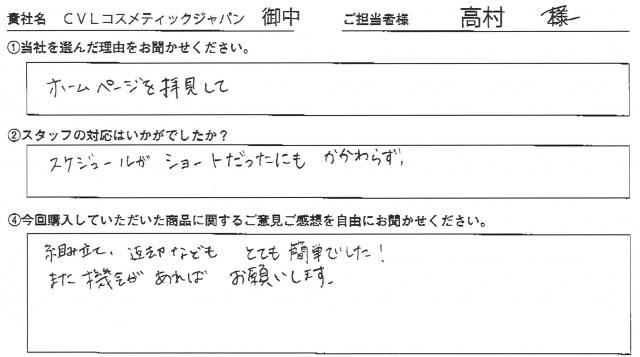 貴社名 CVLコスメティックジャパン 御中 ご担当者様 高村 様
①当社を選んだ理由をお聞かせください。
ホームページを拝見して
②スタッフの対応はいかがでしたか？
スケジュールが ショートだったにも かかわらず、
④今回購入していただいた商品に関するご意見ご感想を自由にお聞かせください。
組み立て、返却なども とても簡単でした！
また機会が あれば お願いします。